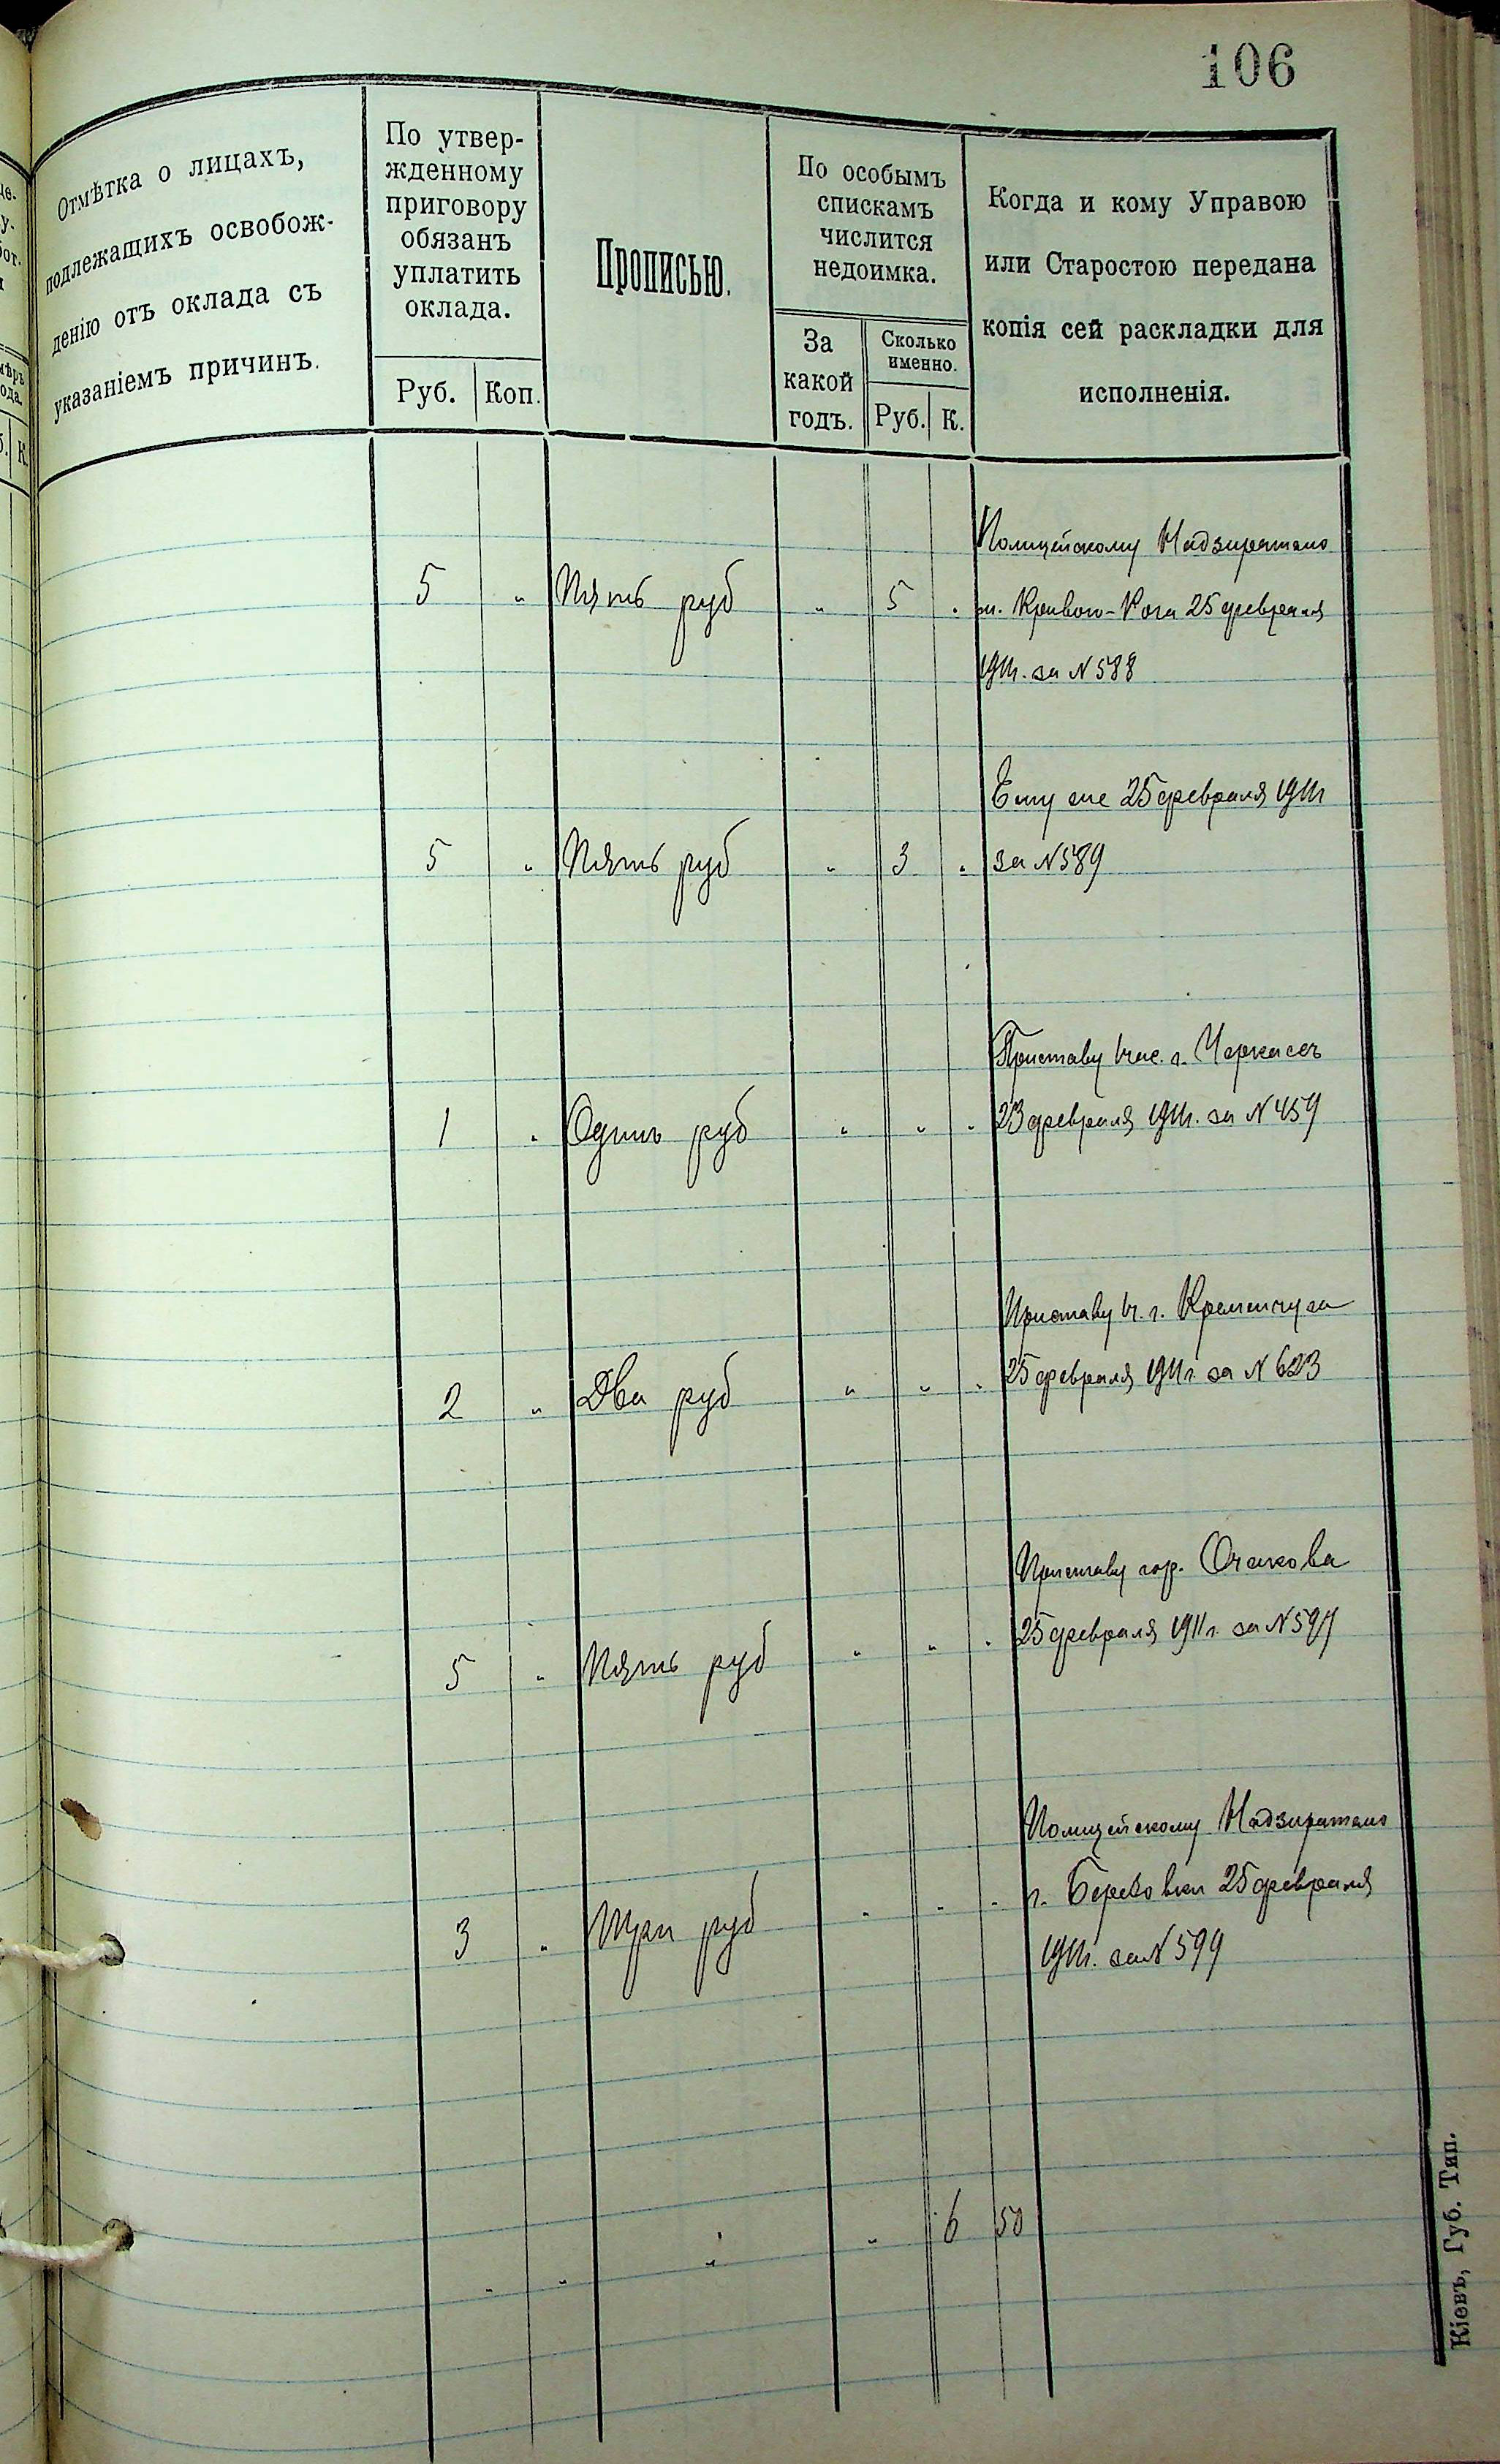 106
Отмѣтка о лицахъ,
подлежащихъ освобож-
денію отъ оклада съ
указаніемъ причинъ.
По утвер-
жденному
приговору
обязанъ
уплатить
оклада.
Руб. Коп.
Прописью.
По особымъ
спискамъ
числится
недоимка.
За
какой
годъ.
Сколько
именно.
Руб. К.
Когда и кому Управою
или Старостою передана
копія сей раскладки для
исполненія.
Полицейскому Надзирателю
5 " Пять руб " 5 " м. Кривой-Рога 25 февраля
1911г. за N 588
Ему же 25 февраля 1911г
5 " Пять руб " 3 " за N 589
Приставу 1 час. г. Черкассъ
1 " Одинъ руб " " " 23 февраля 1911г. за N 459
Приставу 1 ч. г. Кременчуга
2 " Два руб " " " 25 февраля 1911г. за N 623
Приставу гор. Очакова
5 " Пять руб " " " 25 февраля 1911г. за N 597
Полицейскому Надзирателю
3 " Три руб " " " г. 25 февраля
1911г. за N 599
" " " " 6 50
Кіевъ, Губ. Тип.